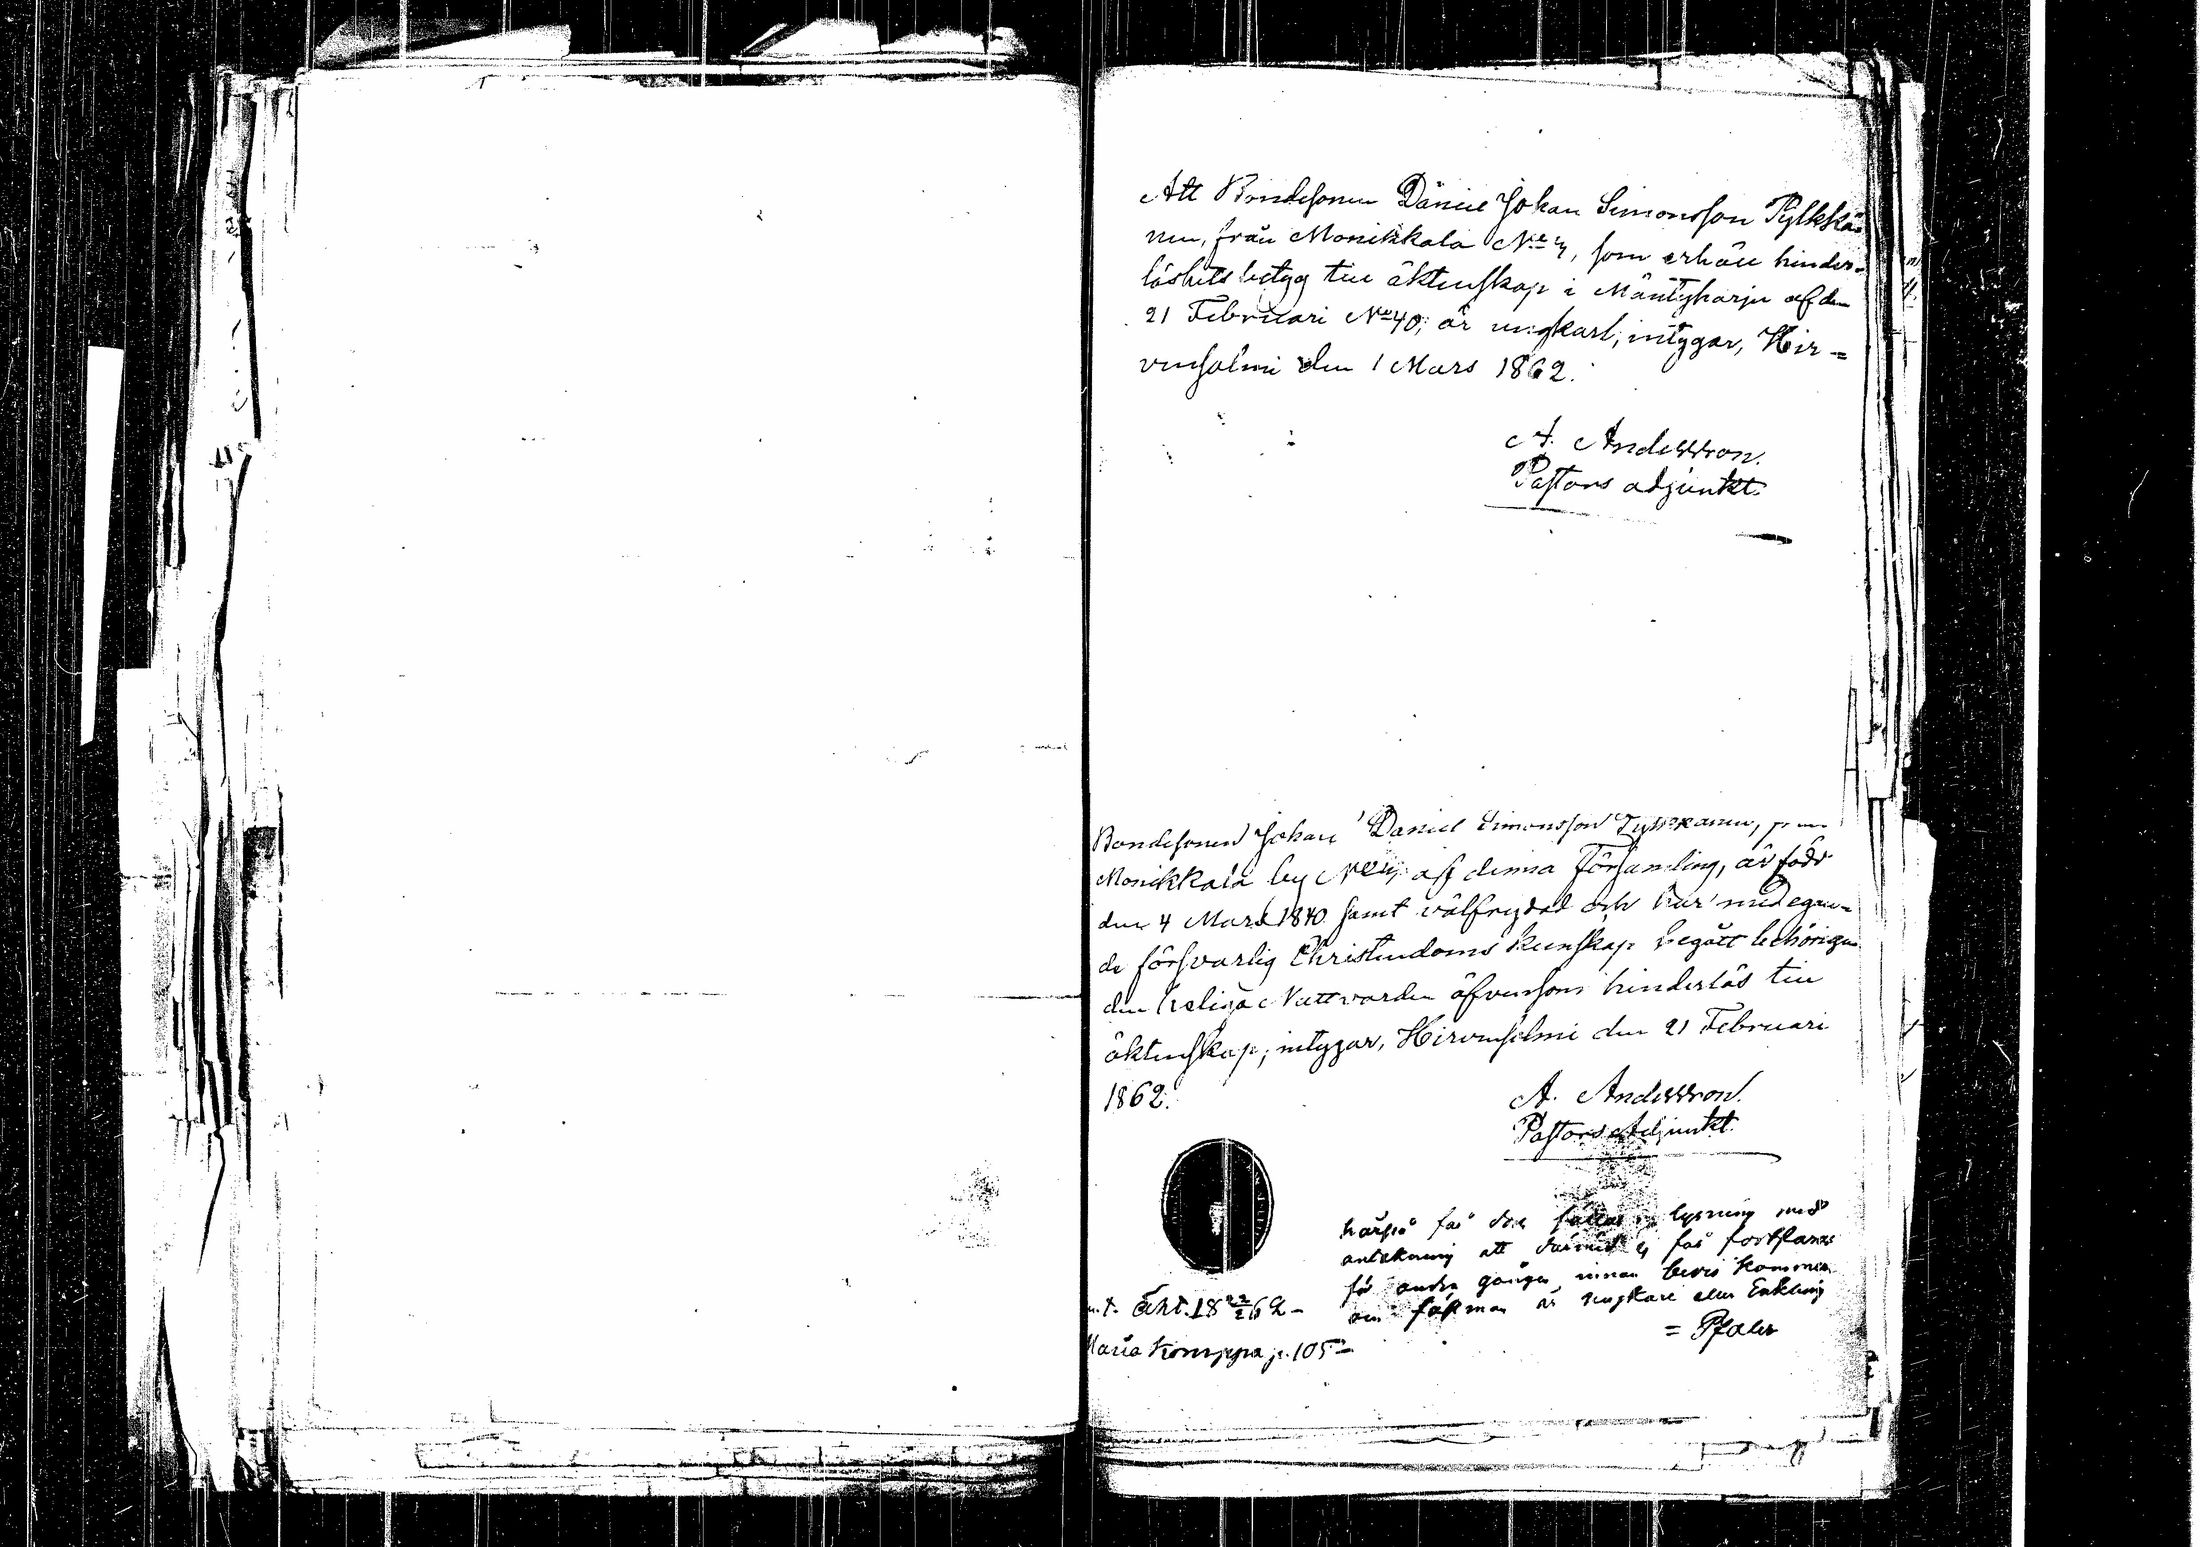 Att Bondesonen Daniel Johan Simonsson Pylkkä-
nen, från Monikkala No 4, som erhållit hinder-
löshets betyg till äktenskap i Mäntyharju af den
21 Februari No 40, är ungkarl, intygar, Hir=
vensalmi den 1 Mars 1862.
A. Andersson.
Pastors adjunkt.
Bondesonen Johan Daniel Simonsson Pylkkänen, från
Monikkala by No 4, af denna Församling, är född
den 4 Mars 1840 samt välfrejdad och har med egan-
de försvarlig Christendoms kunskap begått behörigen
den heliga Nattvarden äfvensom hinderlös till
äktenskap, intygar, Hirvensalmi den 21 Februari
1862.
A. Andersson.
Pastors Adjunkt.
härpå får lysning med
anteckning att dermed ej får fortfaras
för andra gången, innan bevis kommer
om fästman är ungkarl eller Enkling
= Pfaler
äkt. 18 22/2 62 -
Maria Komppa p. 105 -